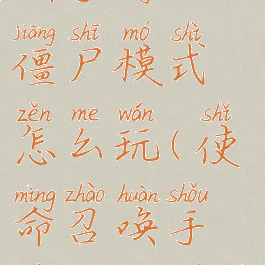 jiāng shī mó shì
僵尸模式
zěn me wán ( shǐ
怎么玩(使
mìng zhào huàn shǒu
命召唤手